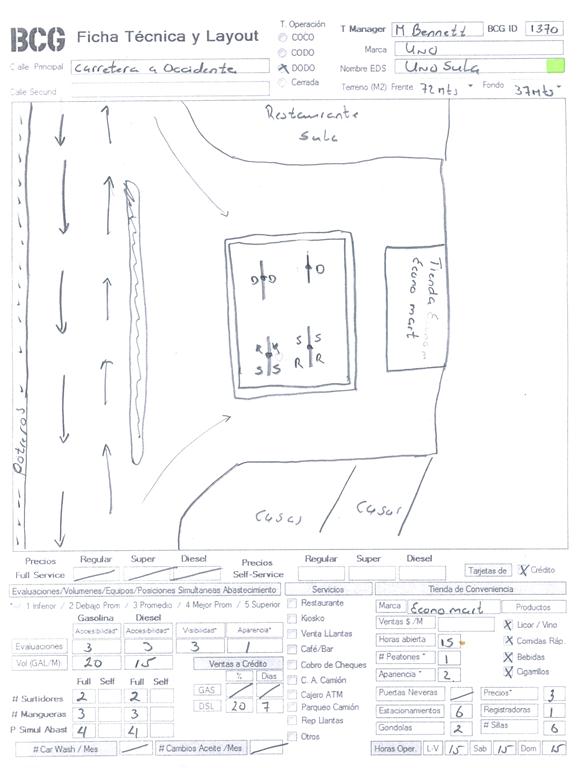 BCG Ficha Técnica y Layout
T. Operación
COCO
CODO
X DODO
Cerrada
T Manager M Bennett BCG ID 1370
Marca Uno
Nombre EDS Uno Sula
Calle Principal Carretera a Occidente
Calle Secund
Terreno (M2) Frente 72 mts Fondo 37 mts
Restaurante
Sula
Tienda Econom
Econo mart
D D D
S S
R R
R R
S S
Potreros
Casas Casas
Precios Regular Super Diesel Precios Regular Super Diesel
Full Service Self-Service Tarjetas de X Crédito
Evaluaciones/Volumenes/Equipos/Posiciones Simultaneas Abastecimiento
* 1 Inferior / 2 Debajo Prom / 3 Promedio / 4 Mejor Prom / 5 Superior
Gasolina Diesel
Accesibilidad* Accesibilidad* Visibilidad* Aparencia*
Evaluaciones 3 3 3 1
Vol (GAL/M) 20 15
Ventas a Crédito
% Dias
GAS
DSL 20 7
Full Self Full Self
# Surtidores 2 2
# Mangueras 3 3
P Simul Abast 4 4
# Car Wash / Mes # Cambios Aceite /Mes
Servicios
Restaurante
Kiosko
Venta LLantas
Café/Bar
Cobro de Cheques
C. A. Camión
Cajero ATM
Parqueo Camión
Rep Llantas
Otros
Tienda de Conveniencia
Marca Econo mart
Ventas $ /M
Horas abierta 15
# Peatones * 1
Aparencia * 2
Productos
X Licor / Vino
X Comidas Ráp.
X Bebidas
X Cigarrilos
Puertas Neveras Precios* 3
Estacionamientos 6 Registradoras 1
Gondolas 2 # Sillas 6
Horas Oper. L-V 15 Sab 15 Dom 15